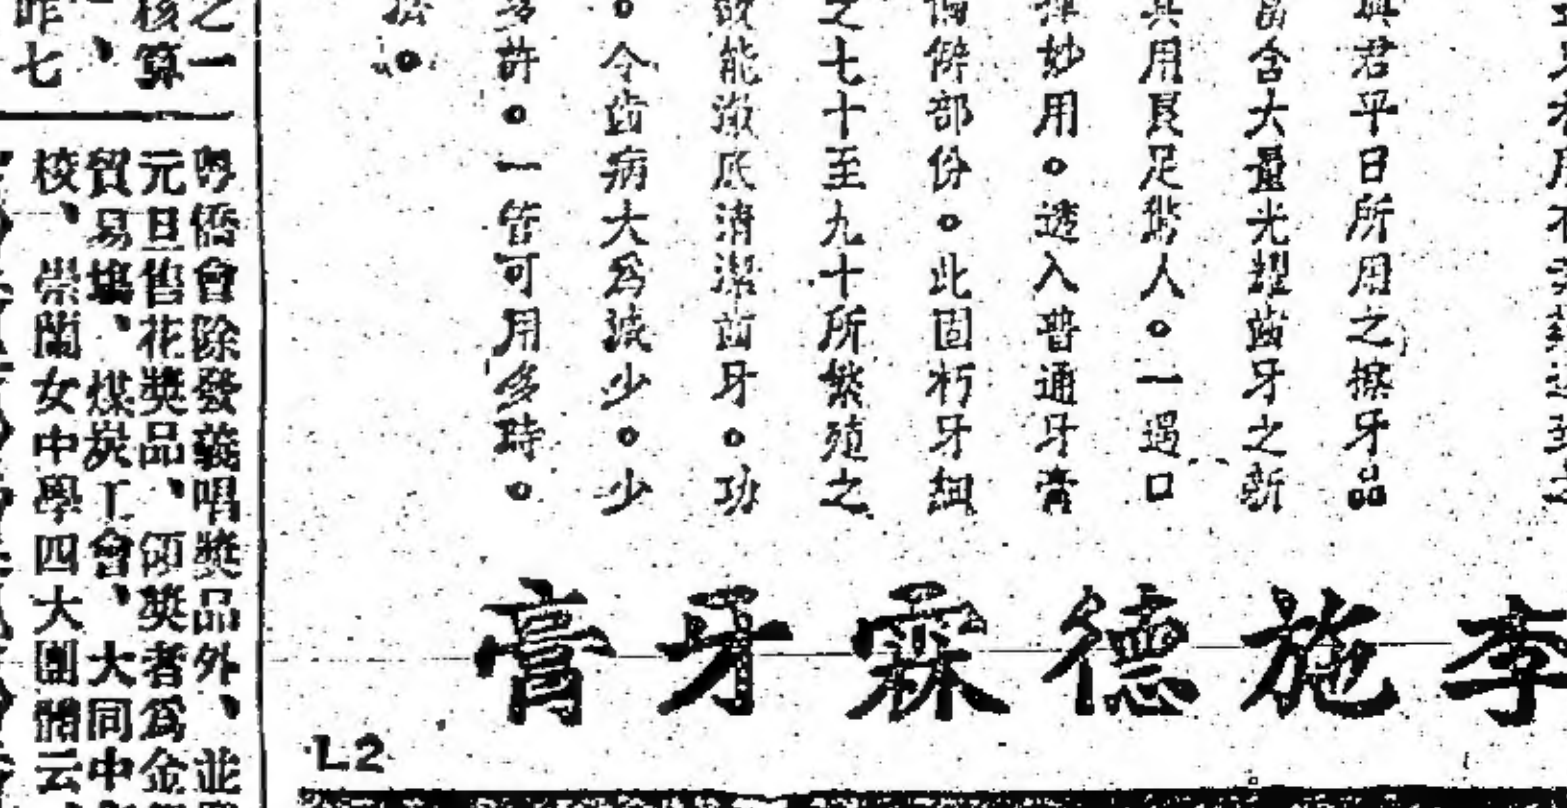 君平日所用之擦牙品
含大量光耀齒牙之新
其用良足驚人。一過口
妙用。透入普通牙膏
僻部份。此固朽牙細
之七十至九十所繁殖之
能澈底清潔齒牙。功
。令齒病大為減少。少
多許。一管可用多時。
李施德霖牙膏
L2
之一
核算
昨七
粵僑會除發義唱獎品外、並
元旦售花獎品、頒獎者為金
貿易場、煤炭工會、大同中
校、崇蘭女中學四大團體云